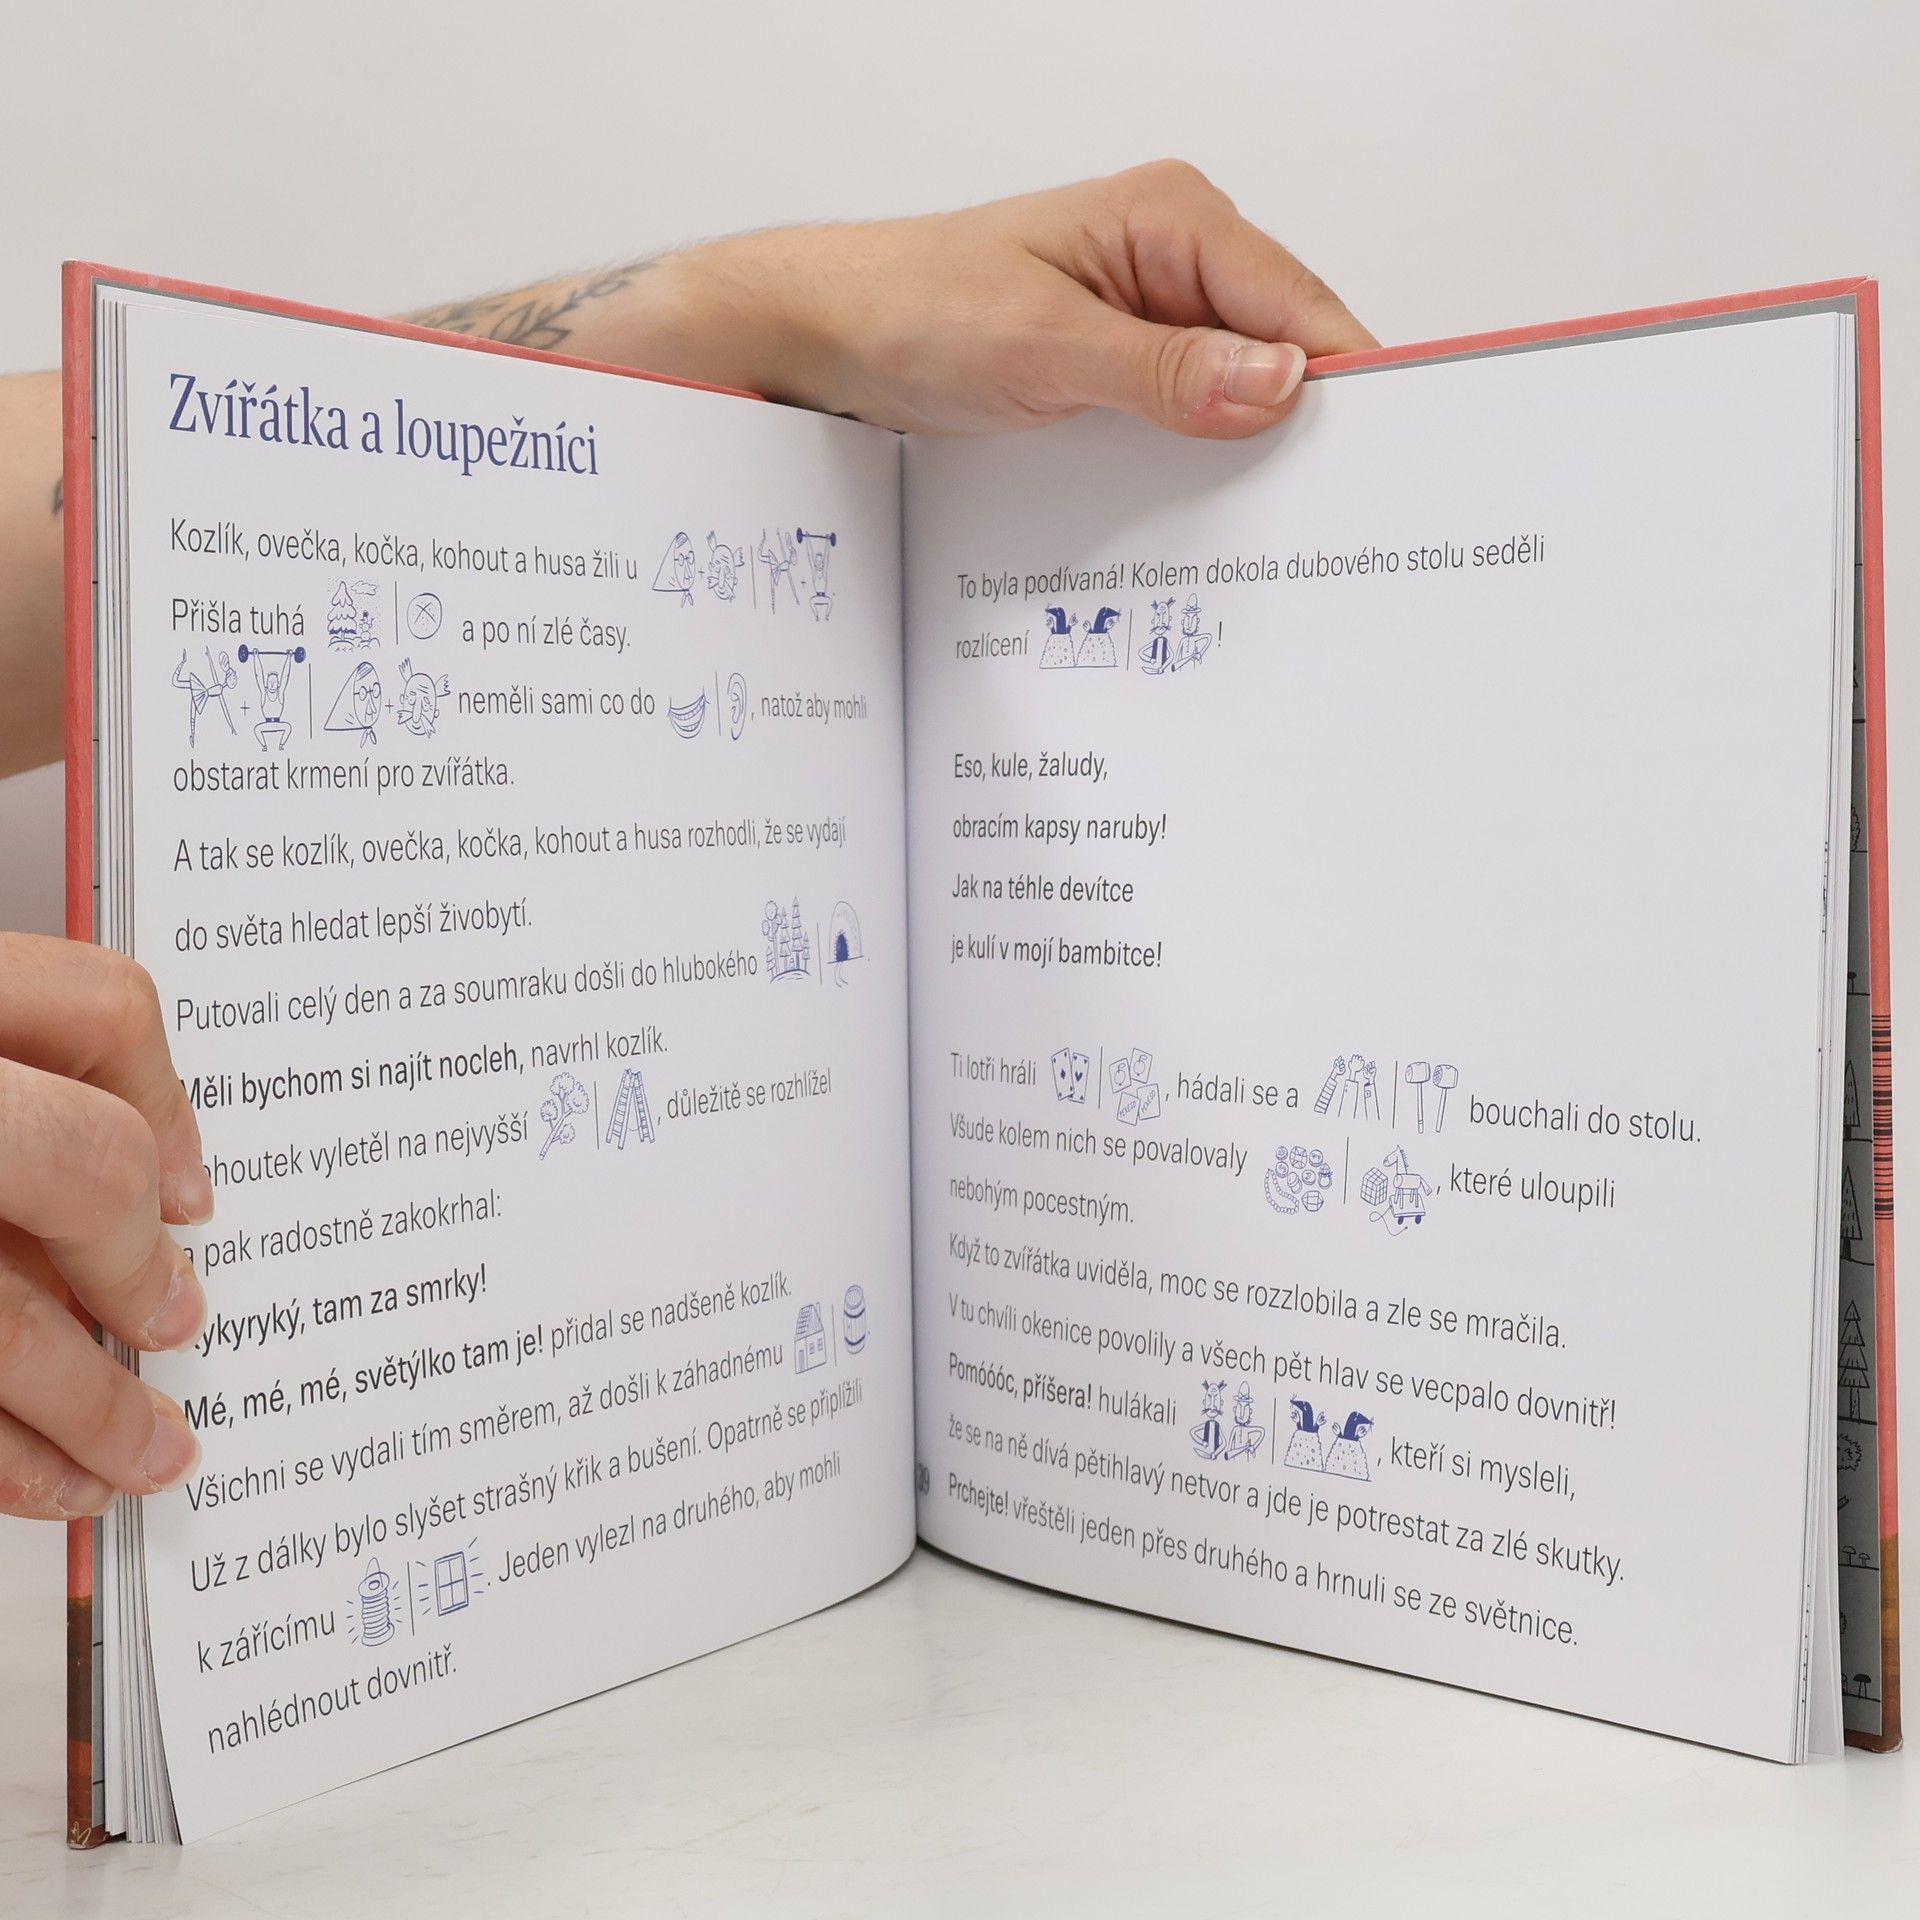 Zvířátka a loupežníci
Kozlík, ovečka, kočka, kohout a husa žili u
Přišla tuhá a po ní zlé časy.
neměli sami co do , natož aby mohli
obstarat krmení pro zvířátka.
A tak se kozlík, ovečka, kočka, kohout a husa rozhodli, že se vydají
do světa hledat lepší živobytí.
Putovali celý den a za soumraku došli do hlubokého .
Měli bychom si najít nocleh, navrhl kozlík.
ohoutek vyletěl na nejvyšší , důležitě se rozhlížel
a pak radostně zakokrhal:
ykyryký, tam za smrky!
Mé, mé, mé, světýlko tam je! přidal se nadšeně kozlík.
Všichni se vydali tím směrem, až došli k záhadnému .
Už z dálky bylo slyšet strašný křik a bušení. Opatrně se připlížili
k zářícímu . Jeden vylezl na druhého, aby mohli
nahlédnout dovnitř.
To byla podívaná! Kolem dokola dubového stolu seděli
rozlícení !
Eso, kule, žaludy,
obracím kapsy naruby!
Jak na téhle devítce
je kulí v mojí bambitce!
Ti lotři hráli , hádali se a bouchali do stolu.
Všude kolem nich se povalovaly , které uloupili
nebohým pocestným.
Když to zvířátka uviděla, moc se rozzlobila a zle se mračila.
V tu chvíli okenice povolily a všech pět hlav se vecpalo dovnitř!
Pomóóóc, příšera! hulákali , kteří si mysleli,
že se na ně dívá pětihlavý netvor a jde je potrestat za zlé skutky.
Prchejte! vřeštěli jeden přes druhého a hrnuli se ze světnice.
39